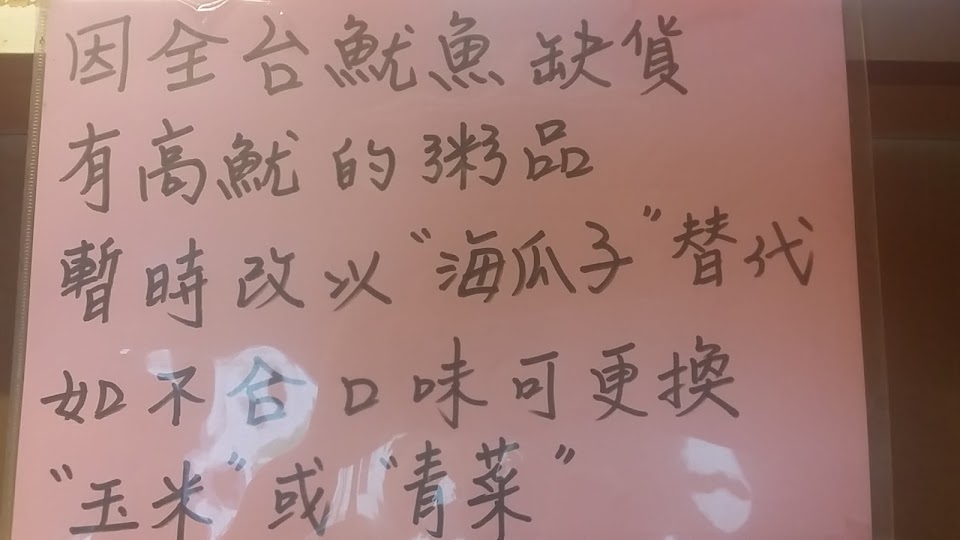 因全台魷魚缺貨
有高魷的粥品
暫時改以"海瓜子"替代
如不合口味可更換
"玉米"或"青菜"